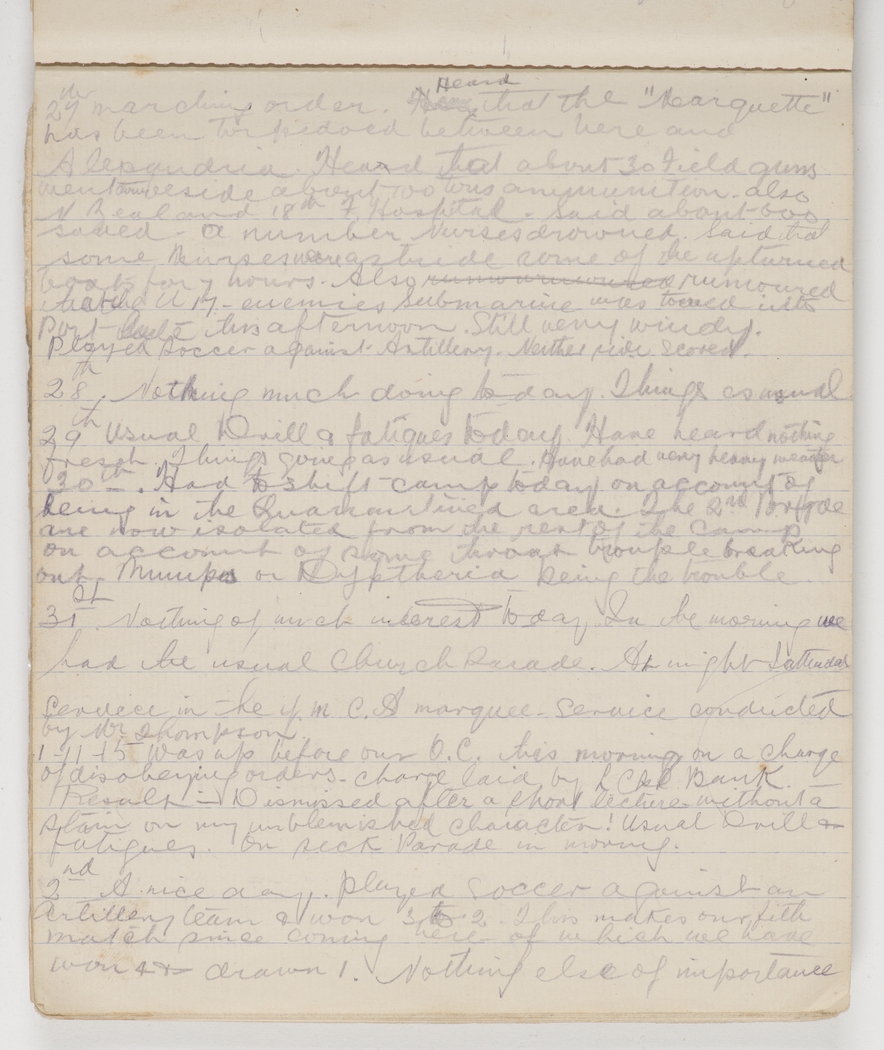 27th marching order. Heard that the "Marquette"
has been torpedoed between here and
Alexandria. Heard that about 30 Field guns
went beside about 700 tons ammunition. also
N Zealand 18th F. Hospital. Said about 600
saved - a number Nurses drowned. Said that
some Nurses were astride some of the upturned
boats for 7 hours. Also rumoured
that the U 17 - enemies submarine was towed into
Port this afternoon. Still very windy.
Played Soccer against Artillery. Neither side scored.
28th. Nothing much doing to-day. Things as usual
29th Usual Drill & fatigues today. Have heard nothing
fresh. Things going as usual. Have had very heavy weather
30th. Had to shift camp today on account of
being in the Quarantined area. The 2nd Brigde
are now isolated from the rest of the Camp
on account of some throat trouple breaking
out. Mumps or Dyptheria being the trouble.
31st. Nothing of much interest today. In the morning we
had the usual Church Parade. At night I attended
Service in the Y.M.C.A marquee - Service conducted
by Mr Thompson.
1-11-15 Was up before our O.C. this morning on a charge
of disobeying orders - charge laid by L Cpl Bank.
Result - Dismissed after a short lecture without a
stain on my unblemished character! Usual Drill &
fatigues. On sick Parade in morning.
2nd A nice day. Played Soccer against an
Artillery team & won 3 to 2. This makes our fith
match since coming here of which we have
won 4 & drawn 1. Nothing else of importance